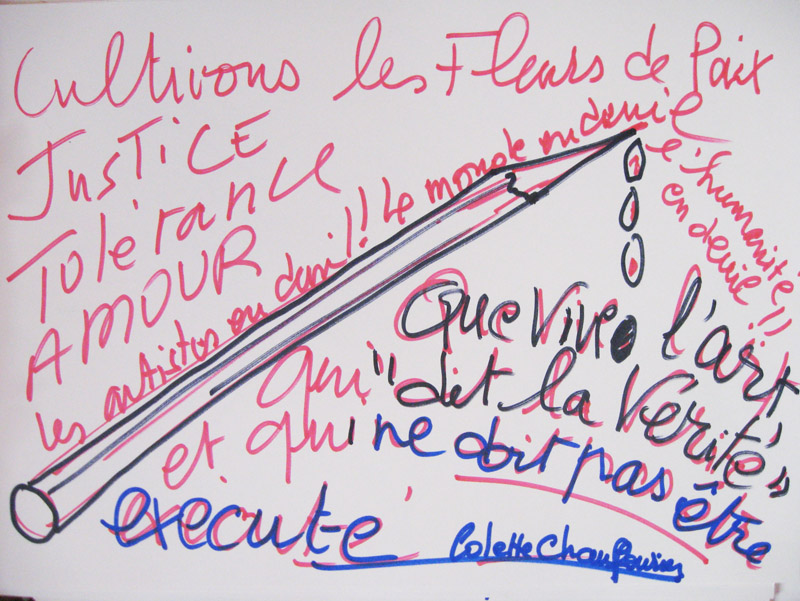 Cultivons les Fleurs de Paix
JUSTICE
Tolérance
AMOUR
les artistes en deuil!! Le monde en deuil
l'humanité
en deuil!!
Que Vive l'art
qui "dit la Vérité"
et qui ne doit pas être
exécuté
Colette